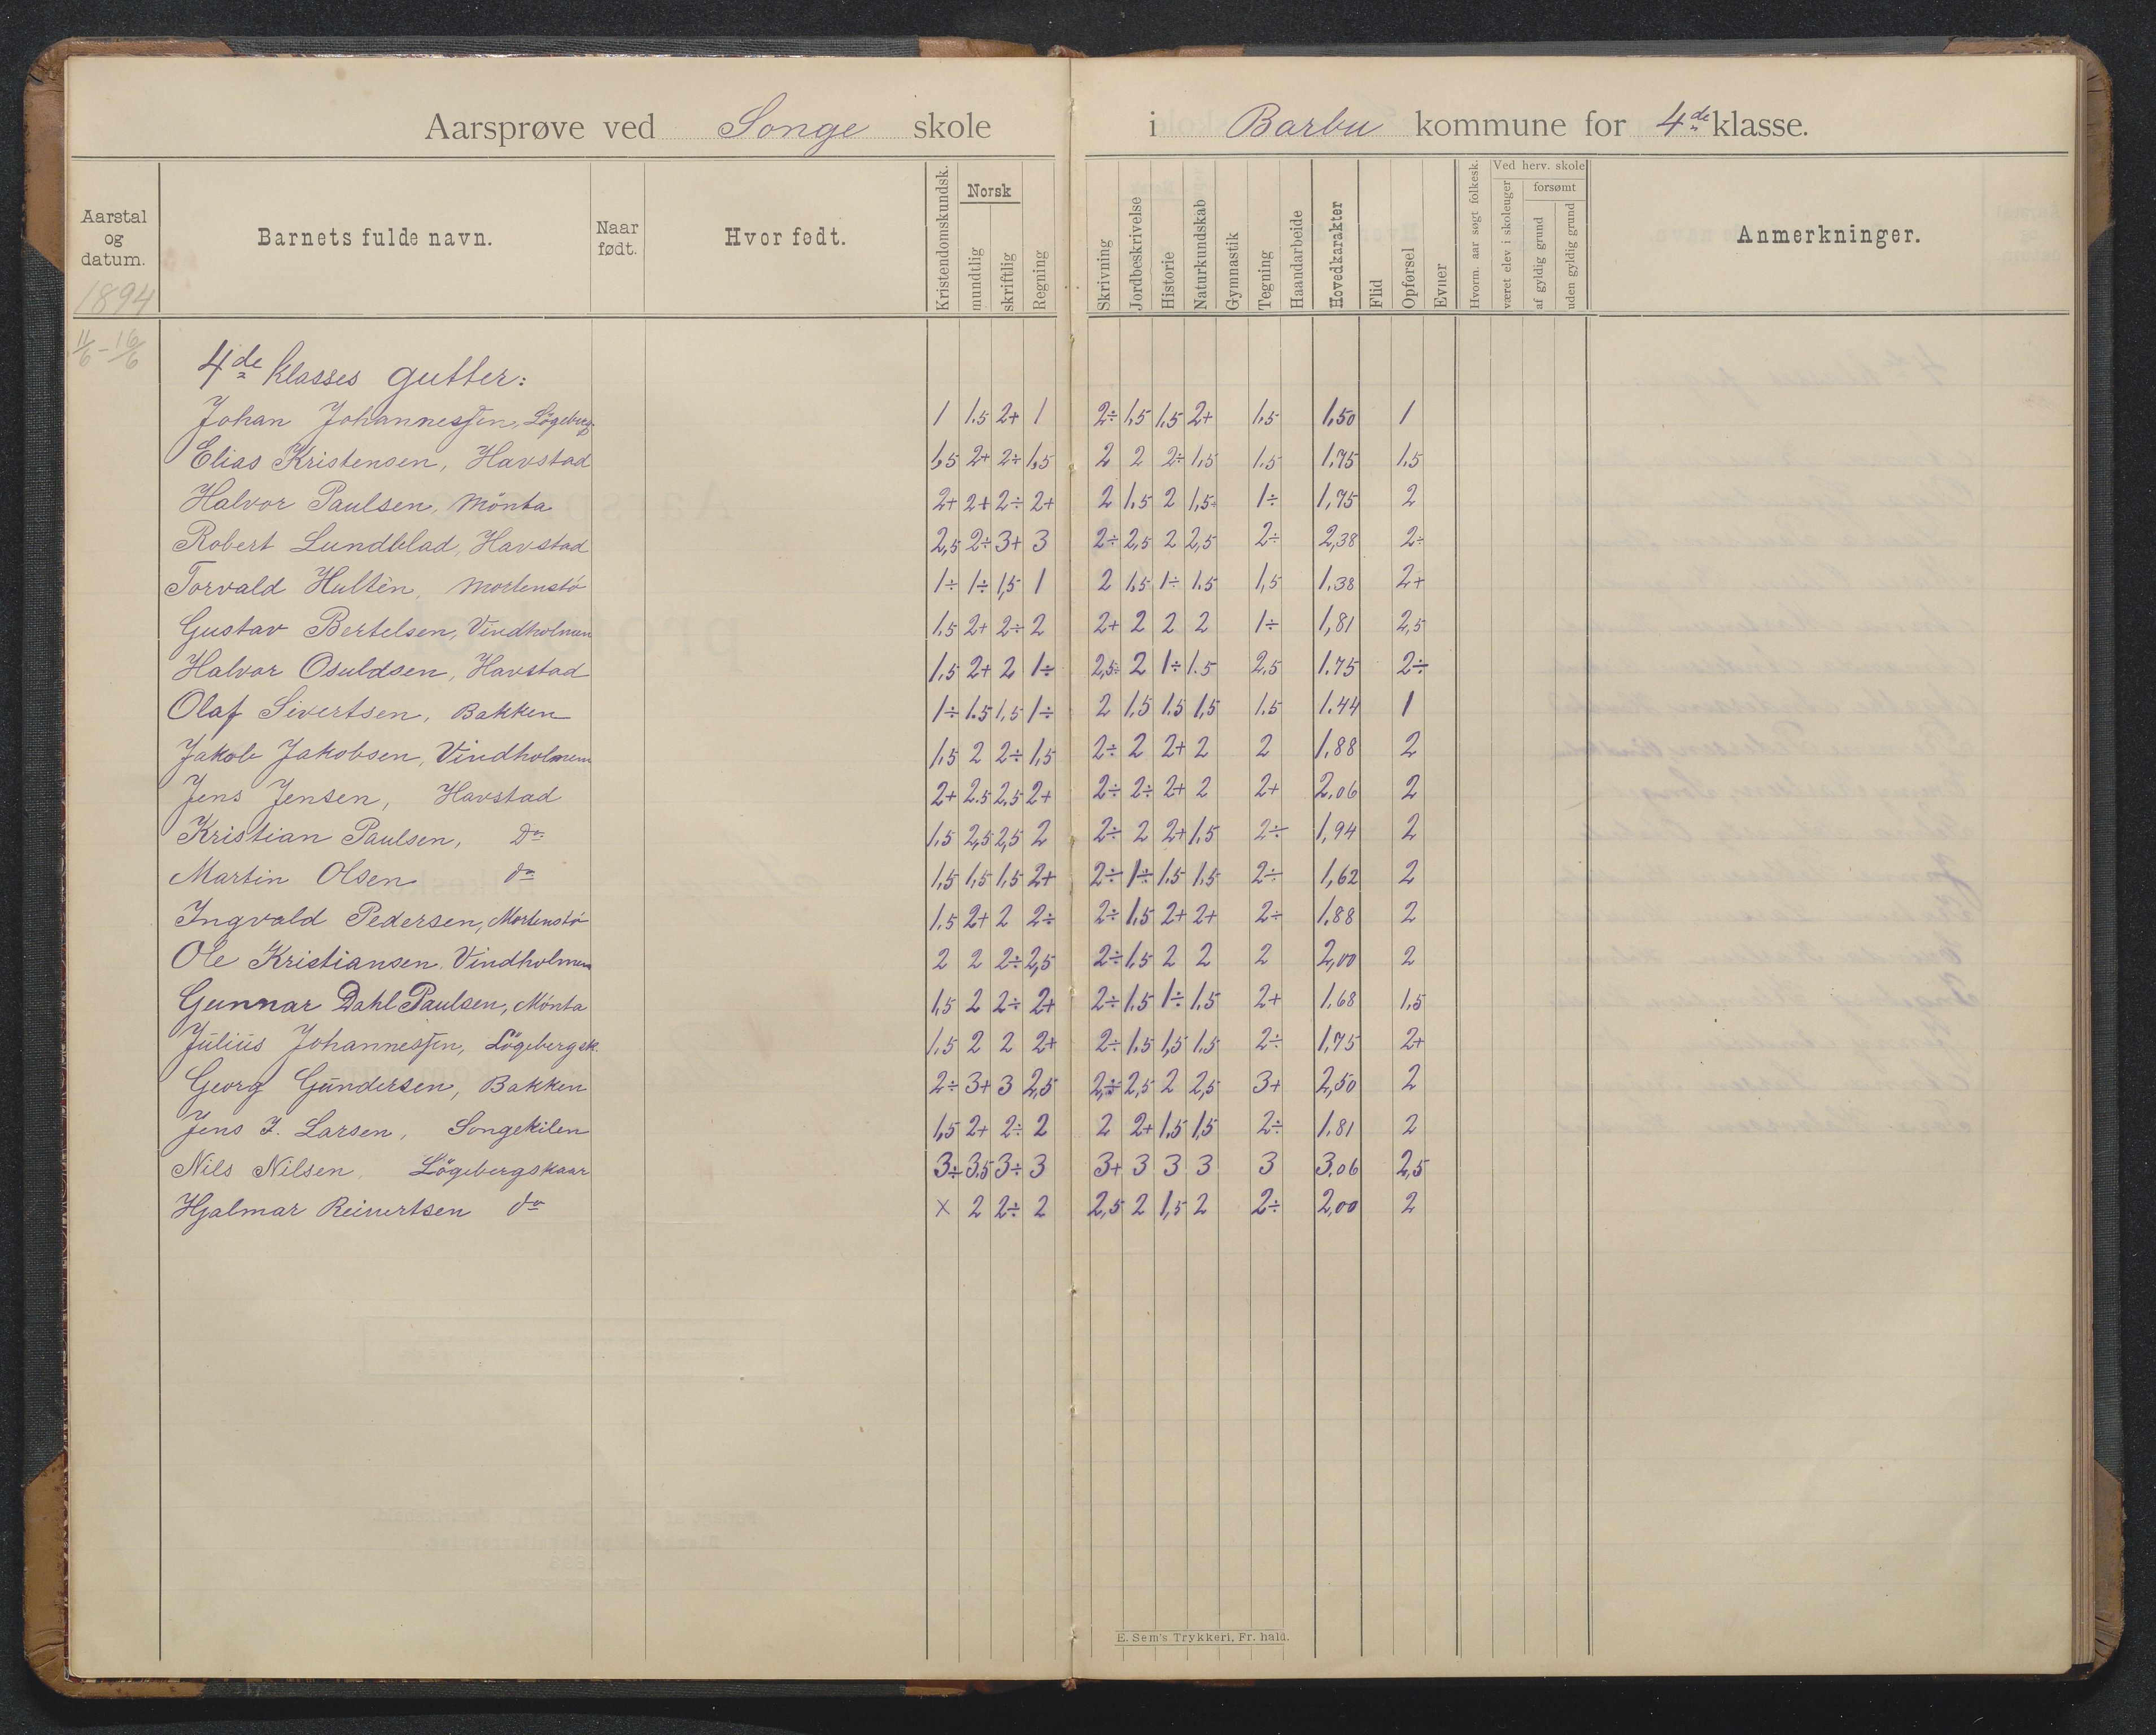 Aarsprøve ved Songe skole i Barbu kommune for 4de klasse.
Aarstal og datum. Barnets fulde navn. Naar født. Hvor født. Kristendomskundsk. Norsk mundtlig skriftlig Regning Skrivning Jordbeskrivelse Historie Naturkundskab Gymnastik Tegning Haandarbeide Hovedkarakter Flid Opførsel Evner Hvorm. aar søgt folkesk. Ved herv. skole været elev i skoleuger forsømt af gyldig grund uden gyldig grund Anmerkninger.
1894
11/6 - 16/6
4de klasses gutter:
Johan Johannessen, Lögebergs. 1 1.5 2+ 1 2÷ 1,5 1.5 2+ 1.5 1,50 1
Elias Kristensen, Havstad 1,5 2+ 2÷ 1,5 2 2 2÷ 1,5 1.5 1,75 1,5
Halvor Paulsen, Mönta 2+ 2+ 2÷ 2+ 2 1.5 2 1,5 1÷ 1,75 2
Robert Lundblad, Havstad 2,5 2÷ 3+ 3 2÷ 2,5 2 2,5 2÷ 2,38 2÷
Torvald Hultén, Mortenstö 1÷ 1÷ 1,5 1 2 1,5 1÷ 1.5 1,5 1.38 2+
Gustav Bertelsen, Vindholmen 1.5 2+ 2÷ 2 2+ 2 2 2 1÷ 1,81 2,5
Halvor Osuldsen, Havstad 1.5 2+ 2 1÷ 2,5÷ 2 1÷ 1.5 2,5 1.75 2÷
Olaf Sivertsen, Bakken 1÷ 1.5 1,5 1÷ 2 1,5 1.5 1,5 1.5 1.44 1
Jakob Jakobsen, Vindholmen 1,5 2 2÷ 1,5 2÷ 2 2+ 2 2 1,88 2
Jens Jensen, Havstad 2+ 2.5 2,5 2+ 2÷ 2÷ 2+ 2 2+ 2,06 2
Kristian Paulsen, do 1.5 2,5 2,5 2 2÷ 2 2+ 1,5 2÷ 1,94 2
Martin Olsen do 1,5 1,5 1,5 2+ 2÷ 1÷ 1.5 1.5 2÷ 1,62 2
Ingvald Pedersen, Mortenstö 1.5 2+ 2 2÷ 2÷ 1.5 2+ 2+ 2÷ 1.88 2
Ole Kristiansen, Vindholmen 2 2 2÷ 2,5 2÷ 1,5 2 2 2 2,00 2
Gunnar Dahl Paulsen, Mónta 1,5 2 2÷ 2+ 2÷ 1.5 1÷ 1.5 2+ 1.68 1.5
Julius Johannessen, Lögebergsk. 1.5 2 2 2+ 2÷ 1.5 1,5 1.5 2÷ 1,75 2+
Georg Gundersen, Bakken 2÷ 3+ 3 2,5 2,5÷ 2,5 2 2,5 3+ 2,50 2
Jens J. Larsen, Songekilen 1,5 2+ 2÷ 2 2 2+ 1.5 1,5 2÷ 1.81 2
Nils Nilsen, Lögebergskaar 3÷ 3.5 3÷ 3 3+ 3 3 3 3 3.06 2,5
Hjalmar Reinertsen do × 2 2÷ 2 2,5 2 1,5 2 2÷ 2,00 2
E. Sem's Trykkeri, Fr. hald.